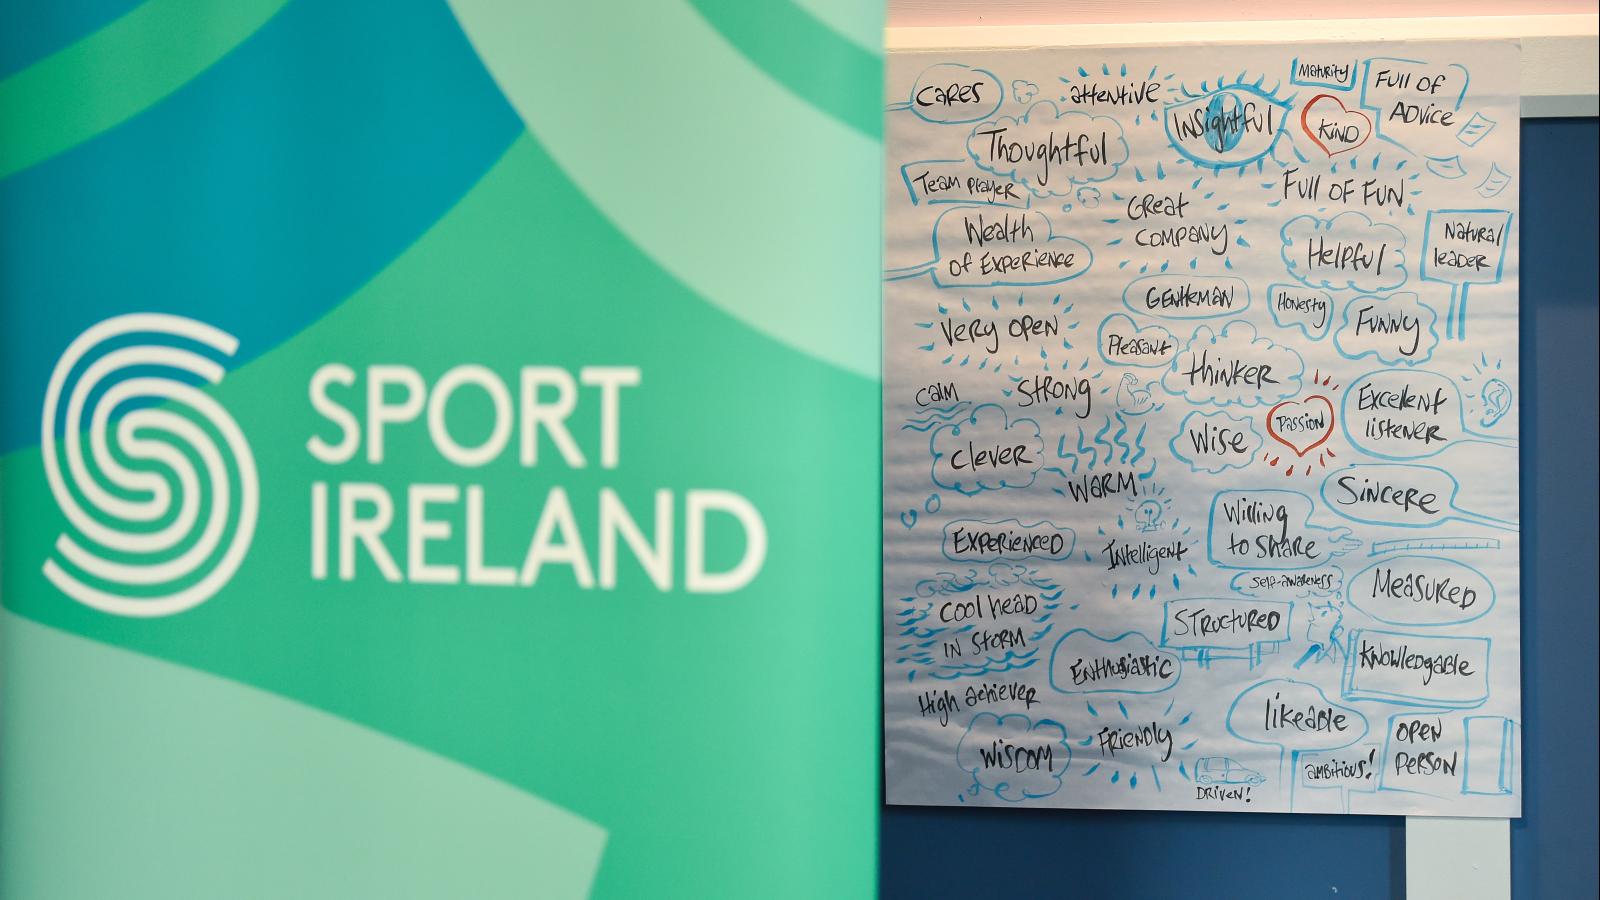 SPORT
IRELAND
CARES
attentive
INSightful
Maturity
KIND
Full of
ADVICE
Thoughtful
Team player
GReat
COMPANY
FUll OF FUN
Wealth
of Experience
HElpful
Natural
leader
GENtleman
Honesty
Funny
Very open
Pleasant
thinker
calm
STRONG
PASSION
Excellent
listener
clever
Wise
WARM
SINCERE
Experienced
Intelligent
Willing
to share
Self-awareness
Measured
cool head
IN STORM
STRuctuRED
Enthusiastic
Knowledgable
High achiever
likeable
OPEN
PERSON
WISDOM
FRIENDLY
AMBITIOUS!
DRIVEN!